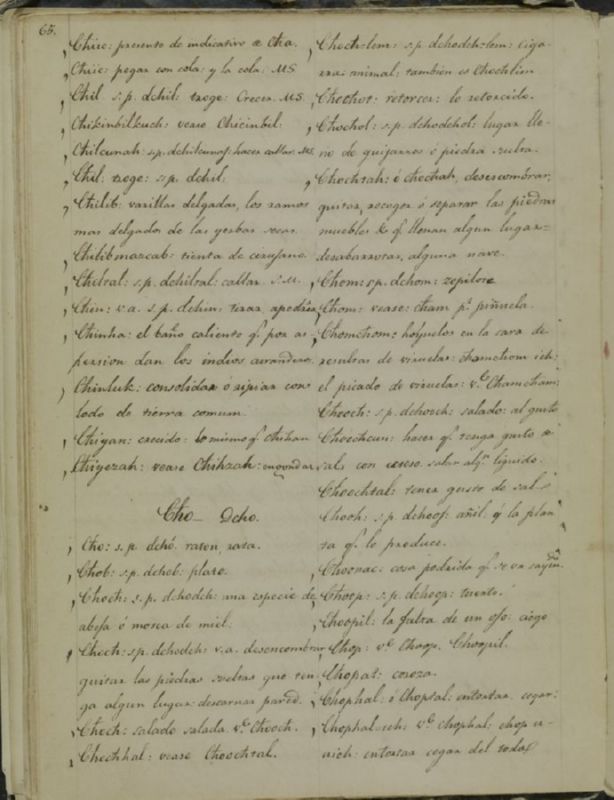 65.
Chiic: presente de indicativo de Cha.
Chiic: pegar con cola: y la cola. MS.
Chil s.p. dchil: troge: Crecer. MS.
Chikinbilkuch: vease Chicinbil:
Chilcunah: s.p. dchilcunaj: hacer callar. MS.
Chil: troge: s.p. dchil:
Chilib: varillas delgadas, los ramos
mas delgados de las yerbas secas.
Chilibmazcab: tienta de cirujano.
Chilral: s.p. dchilral: callar. S.M.
Chin: v.a. s.p. dchin: tirar, apedrear
Chinha: el baño caliente q.e por as-
persion dan los indios curanderos.
Chinluk: consolidar o ripiar con
lodo de tierra comun.
Chiyan: crecido: lo mismo q.e
Chiyezah: vease Chihzah: engendar

Cho_ Dcho.

Cho: s.p. dchó. raton, rata.
Chob: s.p. dchob: plazo.
Choch: s.p. dchodch: una especie de
abeja ó mosca de miel.
Choch: s.p. dchodch: v.a. desencombrar
quitar las piedras sueltas que ten-
ga algun lugar: descarnar pared.
Choch: salado salada. v.e Chooch.
Chochhal: vease Choochtal.
Choch-lem: s.p. dchodch-lem: ciga-
rra: animal: tambien es Chochlin
Chochot: retorcer: lo retorcido.
Chochol: s.p. dchodchol: lugar lle-
no de guijarros ó piedra suelta.
Chochtah: ó chochah, desescombrar,
quitar, recoger ó separar las piedras
muebles &. q.e llenan algun lugar=
desabarrotar, alguna nave.
Chom: s.p. dchom: zopilote
Chom: vease: cham p.a piñuela.
Chomchom: hoyuelos en la cara de
resultas de viruelas: chomchom ich:
el picado de viruelas: v.e Chamcham:
Chooch: s.p. dchooch: salado: al gusto
Choochcun: hacer q.e tenga gusto á
sal, con exceso. salar alg.n liquido.
Choochtal: tener gusto de sal.
Chooh: s.p. dchooj: añil: y la plan
ta q.e lo produce.
Choonac: cosa podrida q.e se va
Choop: s.p. dchoop: tuerto.
Choopil: la falta de un ojo: ciego
Chop: v.e Choop. Choopil.
Chopat: coroza.
Chophal: ó Choptal: entortar. cegar:
Chophal-ich: v.e chophal: chop u-
uich: entortar cegar del todo.